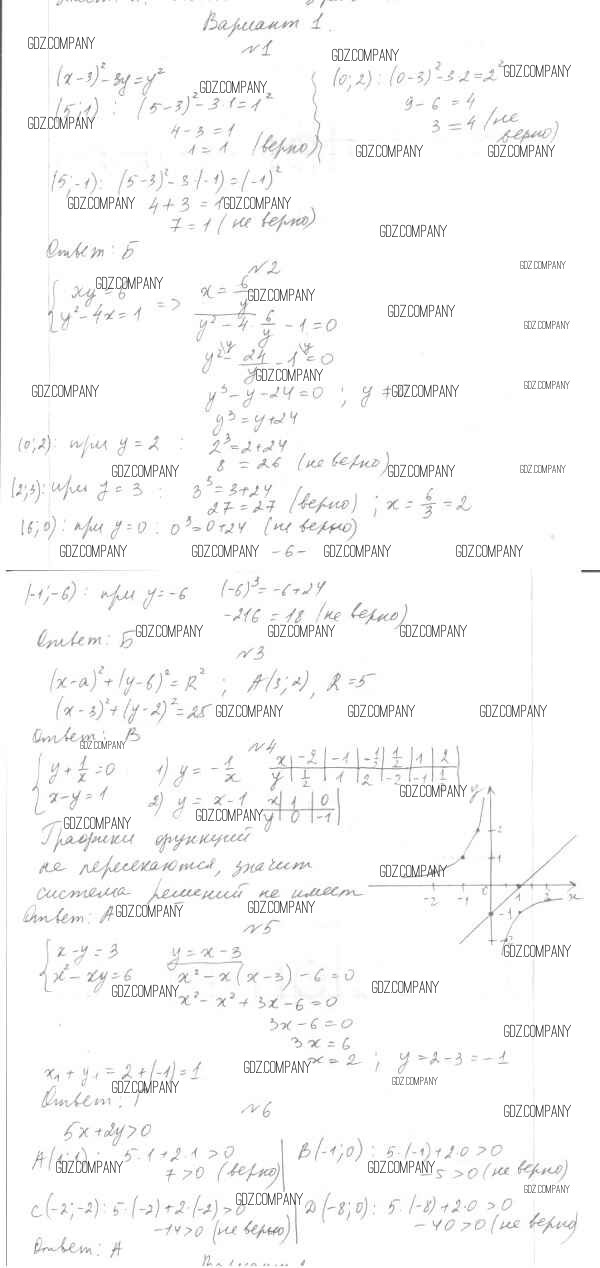 Вариант 1.
№1
(x-3)²-3y=y²
(5;1): (5-3)²-3·1=1²
4-3=1
1=1 (верно)
(0;2): (0-3)²-3·2=2²
9-6=4
3=4 (не верно)
(5;-1): (5-3)²-3·(-1)=(-1)²
4+3=1
7=1 (не верно)
Ответ: Б
№2
{ xy=6 => x=6/y
y²-4x=1 y²-4·6/y-1=0
y²\y - 24/y - 1\y=0
y³-y-24=0; y≠
y³=y+24
(0;2): при y=2: 2³=2+24
8=26 (не верно)
(2;3): при y=3: 3³=3+24
27=27 (верно); x=6/3=2
(6;0): при y=0: 0³=0+24 (не верно)
-6-
(-1;-6): при y=-6 (-6)³=-6+24
-216=18 (не верно)
Ответ: Б
№3
(x-a)²+(y-b)²=R²; A(3;2), R=5
(x-3)²+(y-2)²=25
Ответ: В
№4
{ y+1/x=0 1) y=-1/x x | -2 | -1 | -1/2 | 1/2 | 1 | 2
y | 1/2 | 1 | 2 | -2 | -1 | -1/2
x-y=1 2) y=x-1 x | 1 | 0
y | 0 | -1
Графики функций
не пересекаются, значит
система решений не имеет
Ответ: А
y
2
1
-2 -1 0 1 2 x
-1
-2
№5
{ x-y=3 y=x-3
x²-xy=6 x²-x(x-3)-6=0
x²-x²+3x-6=0
3x-6=0
3x=6
x=2; y=2-3=-1
x₁+y₁=2+(-1)=1
Ответ: Г
№6
5x+2y>0
A(1;1): 5·1+2·1>0
7>0 (верно)
B(-1;0): 5·(-1)+2·0>0
-5>0 (не верно)
C(-2;-2): 5·(-2)+2·(-2)>0
-14>0 (не верно)
D(-8;0): 5·(-8)+2·0>0
-40>0 (не верно)
Ответ: А
GDZ.COMPANY